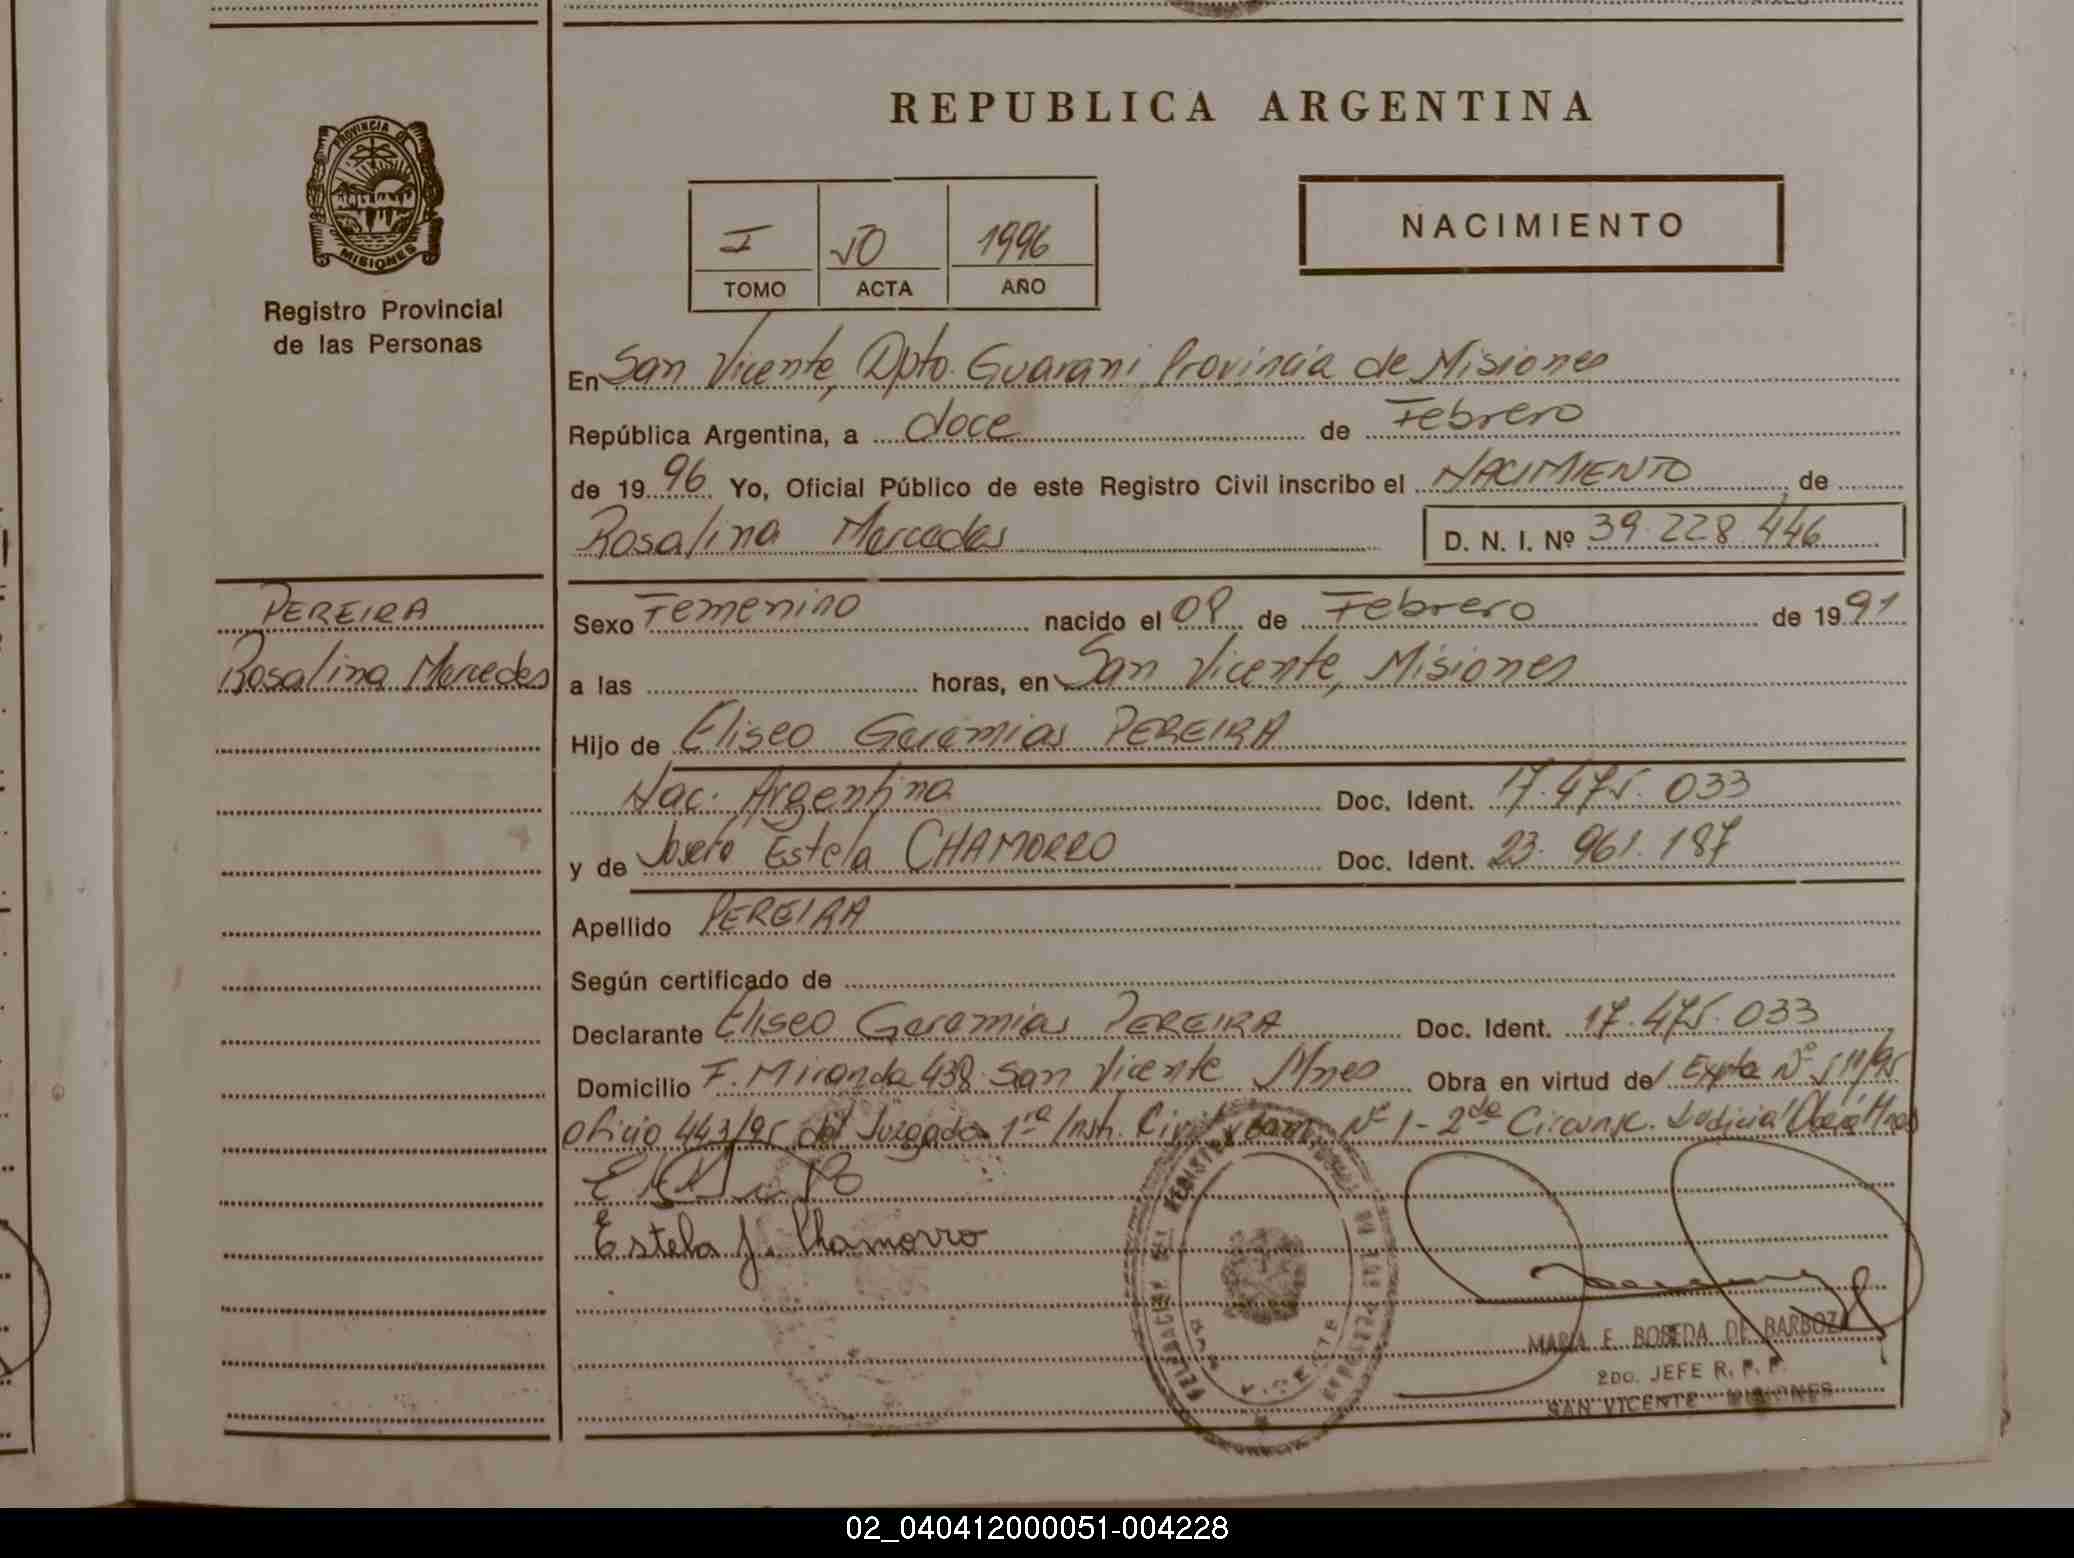 REPUBLICA ARGENTINA
PROVINCIA DE
MISIONES
Registro Provincial
de las Personas
I 50 1996
TOMO ACTA AÑO
NACIMIENTO
En San Vicente, Dpto. Guarani Provincia de Misiones
República Argentina, a doce de Febrero
de 1996 Yo, Oficial Público de este Registro Civil inscribo el NACIMIENTO de
Rosalina Mercedes D. N. I. Nº 39.228.446
PEREIRA
Rosalina Mercedes
Sexo Femenino nacido el de Febrero de 1991
a las horas, en San Vicente, Misiones
Hijo de Eliseo Geremias PEREIRA
Nac. Argentina Doc. Ident. 17.475.033
y de Josefa Estela CHAMORRO Doc. Ident. 23.961.187
Apellido PEREIRA
Según certificado de
Declarante Eliseo Geremias PEREIRA Doc. Ident. 17.475.033
Domicilio F. Miranda 438 San Vicente Mnes Obra en virtud del Expte Nº
Oficio 443/95 del Juzgado 1ra Inst. Civil y Com. Nº 1 - 2da Circunsc. Judicial Oberá Mnes
Estela J. Chamorro
SAN VICENTE
MARIA E. BOBEDA DE BARBOZA
2DO. JEFE R. P. P.
SAN VICENTE - MISIONES
02_040412000051-004228